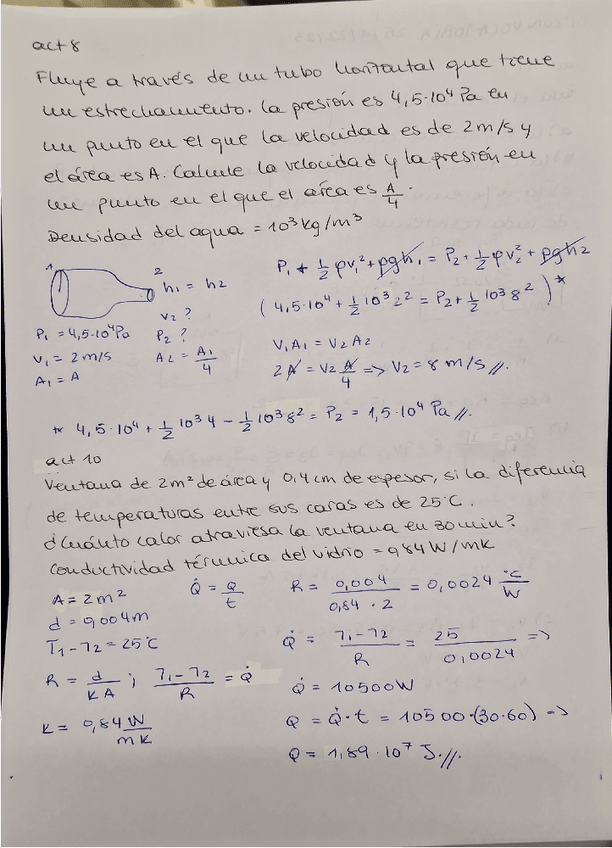 act 8
Fluye a través de un tubo horizontal que tiene
un estrechamiento. La presión es 4,5·10⁴ Pa en
un punto en el que la velocidad es de 2 m/s y
el área es A. Calcule la velocidad y la presión en
un punto en el que el área es A/4.
Densidad del agua = 10³ kg/m³
1 2 h₁ = h₂
P₁ + 1/2 ρv₁² + ρgh₁ = P₂ + 1/2 ρv₂² + ρgh₂
v₂ ?
(4,5·10⁴ + 1/2 10³ 2² = P₂ + 1/2 10³ 8²)*
P₁ = 4,5·10⁴ Pa P₂ ?
v₁ = 2 m/s A₂ = A₁/4
A₁ = A
V₁A₁ = V₂A₂
2A = V₂ A/4 => V₂ = 8 m/s //.
* 4,5·10⁴ + 1/2 10³ 4 - 1/2 10³ 8² = P₂ = 1,5·10⁴ Pa //.
act 10
Ventana de 2m² de área y 0,4 cm de espesor, si la diferencia
de temperaturas entre sus caras es de 25°C.
¿Cuánto calor atraviesa la ventana en 30 min?
Conductividad térmica del vidrio = 0,84 W/mK
A = 2m²
d = 0,004m
T₁-T₂ = 25°C
R = d/KA ; T₁-T₂/R = Q̇
K = 0,84 W/mK
Q̇ = Q/t
R = 0,004/0,84 · 2 = 0,0024 °C/W
Q̇ = T₁-T₂/R = 25/0,0024 =>
Q̇ = 10500W
Q = Q̇·t = 10500·(30·60) =>
Q = 1,89·10⁷ J.//.